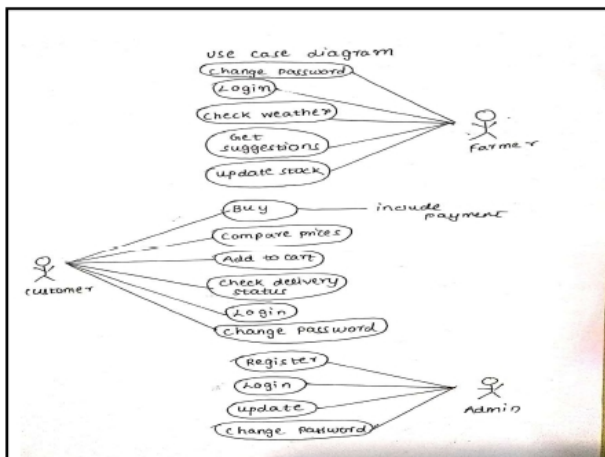 use case diagram
change password
Login
check weather
Get
suggestions
update stock
Farmer
Buy
include
payment
compare prices
Add to cart
check delivery
status
Login
change password
customer
Register
Login
update
change password
Admin